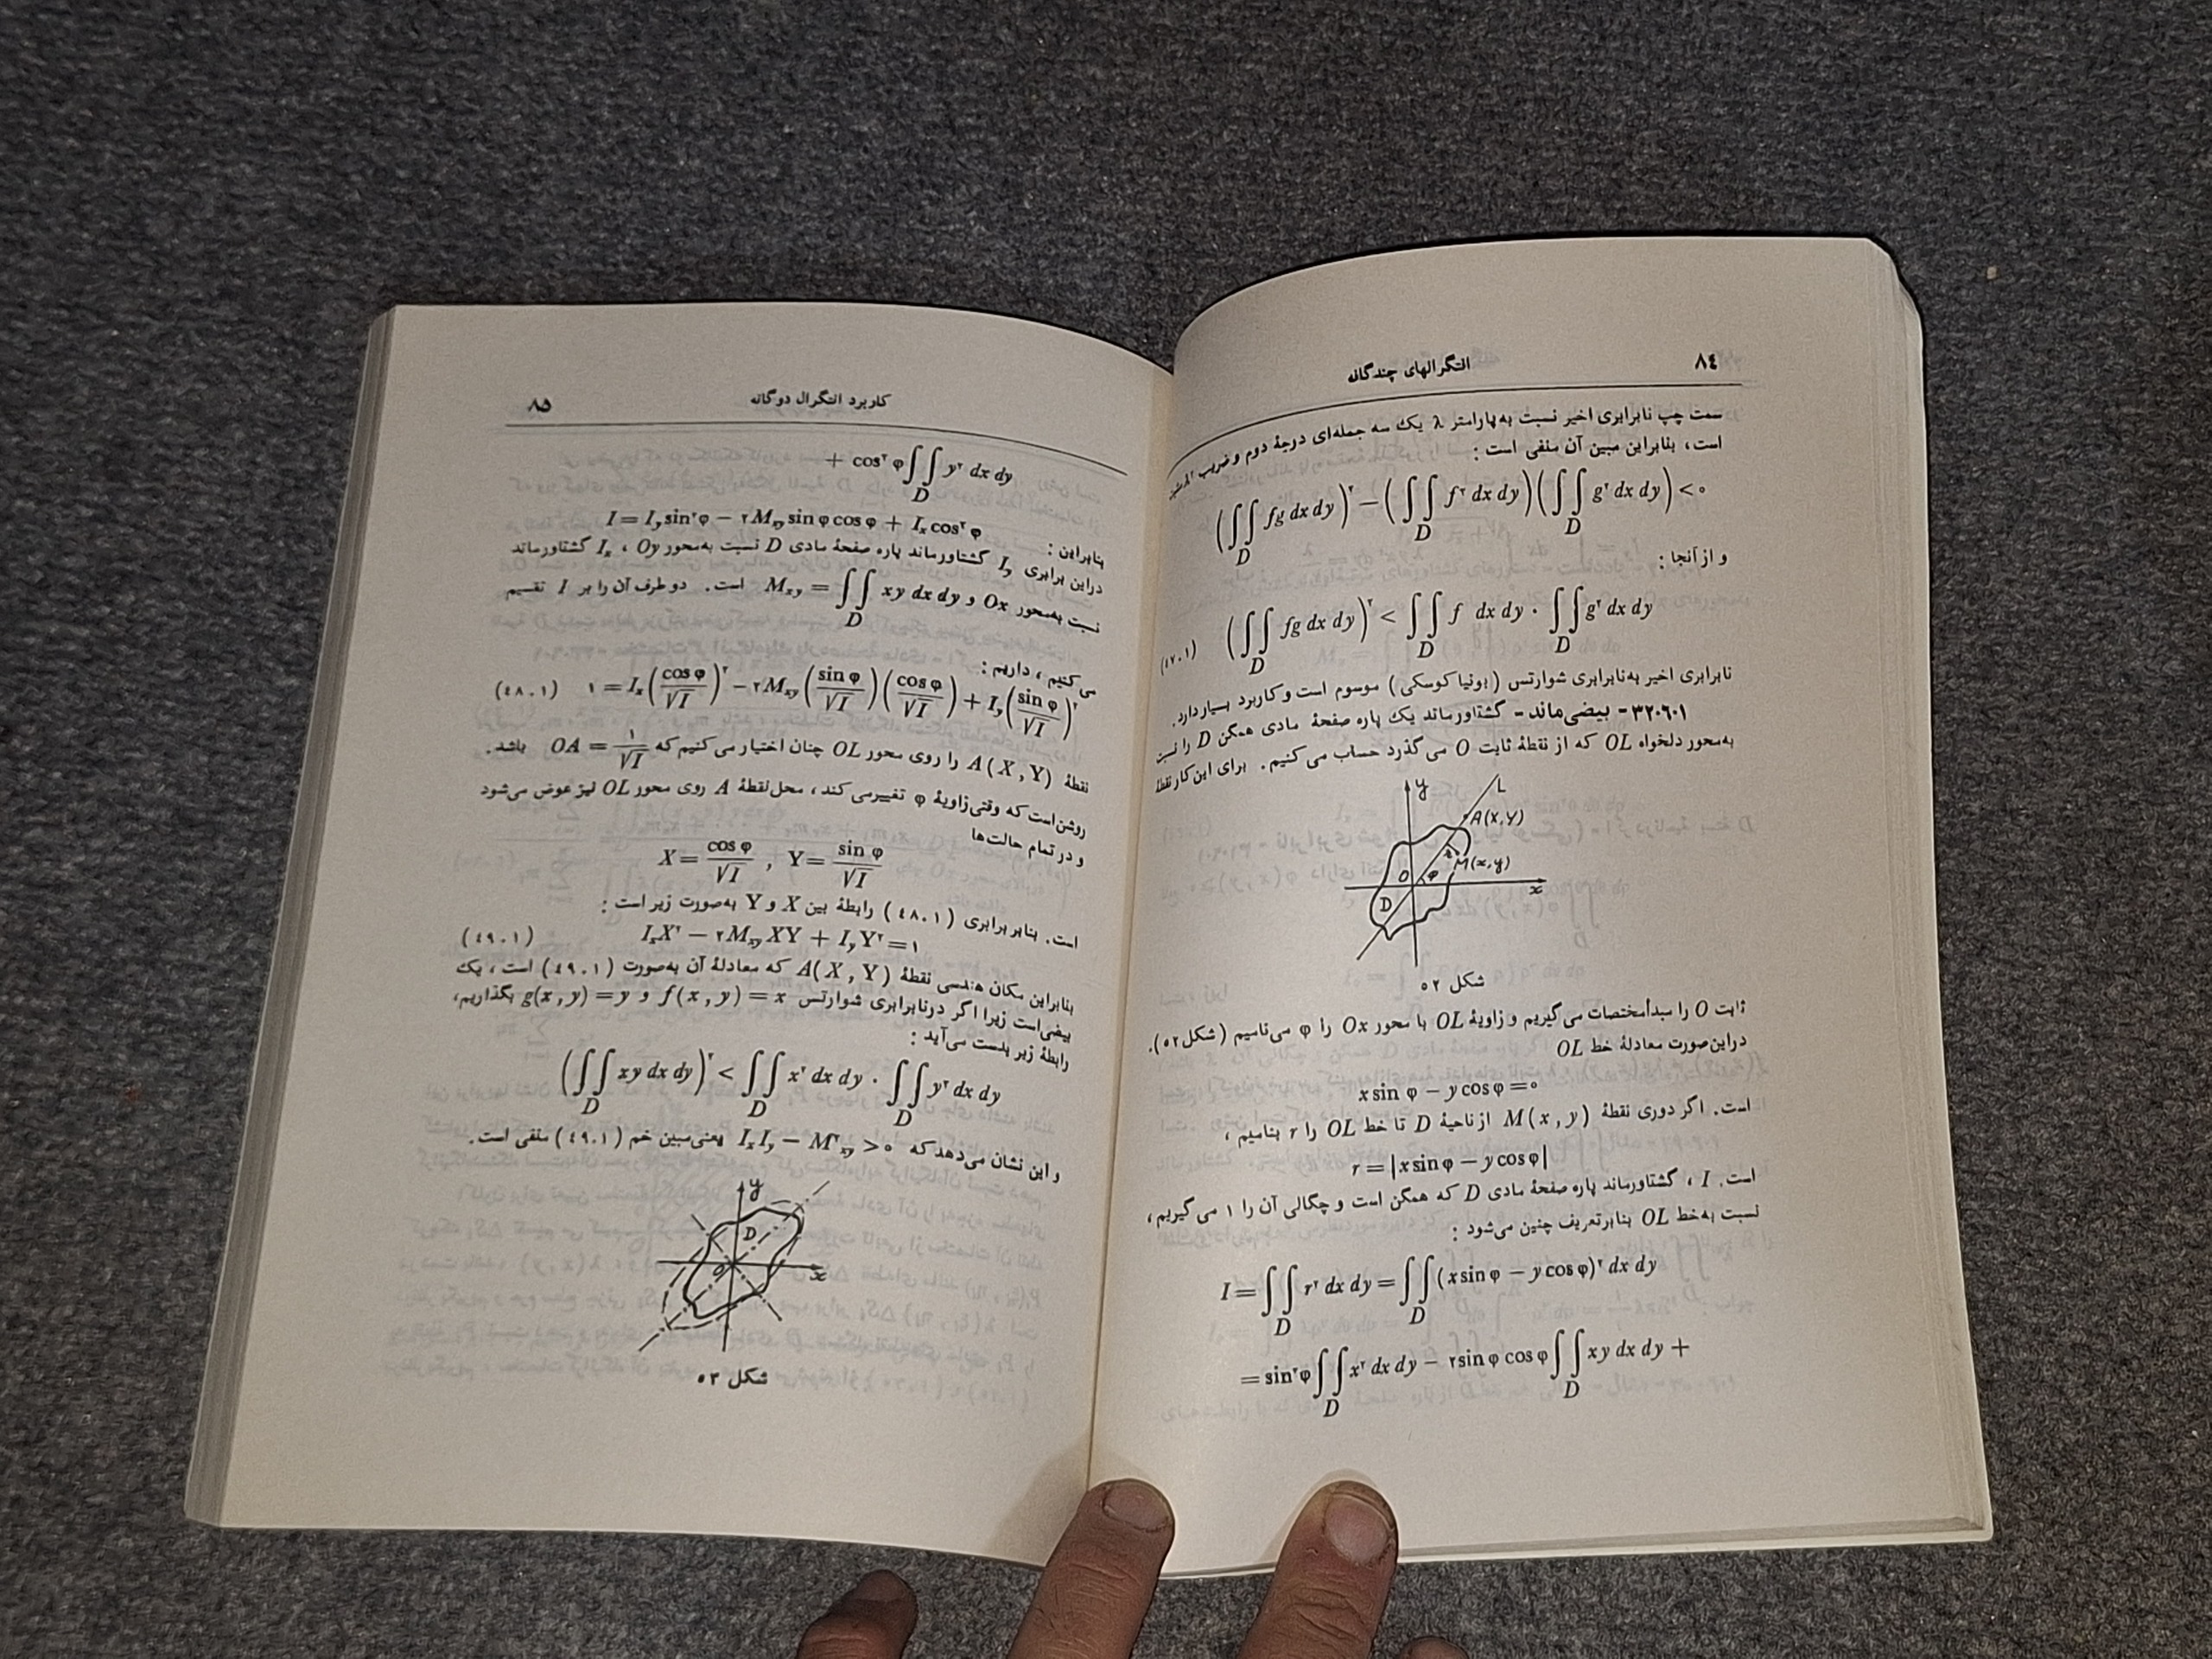 ٨٤
انتگرالهای چندگانه
سمت چپ نابرابری اخیر نسبت به پارامتر λ یک سه جمله‌ای درجهٔ دوم و ضریب λ² مثبت
است، بنابراین مبین آن منفی است :
(∬_D fg dx dy)² − (∬_D f² dx dy)(∬_D g² dx dy) < ۰
و از آنجا :
(٤٧.١) (∬_D fg dx dy)² < ∬_D f dx dy · ∬_D g² dx dy
نابرابری اخیر به‌نابرابری شوارتس (بونیاکوسکی) موسوم است و کاربرد بسیار دارد.
٣٢.٦.١- بیضی‌ماند - گشتاورماند یک پاره صفحهٔ مادی همگن D را نسبت
به‌محور دلخواه OL که از نقطهٔ ثابت O می گذرد حساب می کنیم. برای این کار نقطهٔ
y
L
A(X,Y)
r
M(x,y)
O
φ
x
D
شکل ٥٢
ثابت O را مبدأمختصات می‌گیریم و زاویهٔ OL با محور Ox را φ می‌نامیم (شکل ٥٢).
دراین‌صورت معادلهٔ خط OL
x sin φ − y cos φ = ۰
است. اگر دوری نقطهٔ M(x , y) ازناحیهٔ D تا خط OL را r بنامیم ،
r = |x sin φ − y cos φ|
است. I ، گشتاورماند پاره صفحهٔ مادی D که همگن است و چگالی آن را ١ می گیریم ،
نسبت به‌خط OL بنابرتعریف چنین می‌شود :
I = ∬_D r² dx dy = ∬_D (x sin φ − y cos φ)² dx dy
= sin²φ ∬_D x² dx dy − ٢ sin φ cos φ ∬_D xy dx dy +
کاربرد انتگرال دوگانه
٨٥
+ cos² φ ∬_D y² dx dy
بنابراین : I = I_y sin²φ − ٢M_xy sin φ cos φ + I_x cos² φ
دراین برابری I_y گشتاورماند پاره صفحهٔ مادی D نسبت به‌محور Oy ، I_x گشتاورماند
نسبت به‌محور Ox و M_xy = ∬_D xy dx dy است. دو طرف آن را بر I تقسیم
می کنیم ، داریم :
(٤٨.١) ١ = I_x (cos φ/√I)² − ٢M_xy (sin φ/√I)(cos φ/√I) + I_y (sin φ/√I)²
نقطهٔ A(X , Y) را روی محور OL چنان اختیار می کنیم که OA = ١/√I باشد.
روشن‌است که وقتی‌زاویهٔ φ تغییرمی کند ، محل‌نقطهٔ A روی محور OL نیز عوض می‌شود
و در تمام حالت‌ها
X = cos φ/√I , Y = sin φ/√I
است. بنابر برابری (٤٨.١) رابطهٔ بین X و Y به‌صورت زیر است :
(٤٩.١) I_x X² − ٢M_xy XY + I_y Y² = ١
بنابراین مکان هندسی نقطهٔ A(X , Y) که معادلهٔ آن به‌صورت (٤٩.١) است ، یک
بیضی‌است زیرا اگر درنابرابری شوارتس f(x , y) = x و g(x , y) = y بگذاریم،
رابطهٔ زیر بدست می‌آید :
(∬_D xy dx dy)² < ∬_D x² dx dy · ∬_D y² dx dy
و این نشان می‌دهد که I_x I_y − M²_xy > ۰ یعنی‌مبین خم (٤٩.١) منفی است.
y
D
O
x
شکل ٥٣